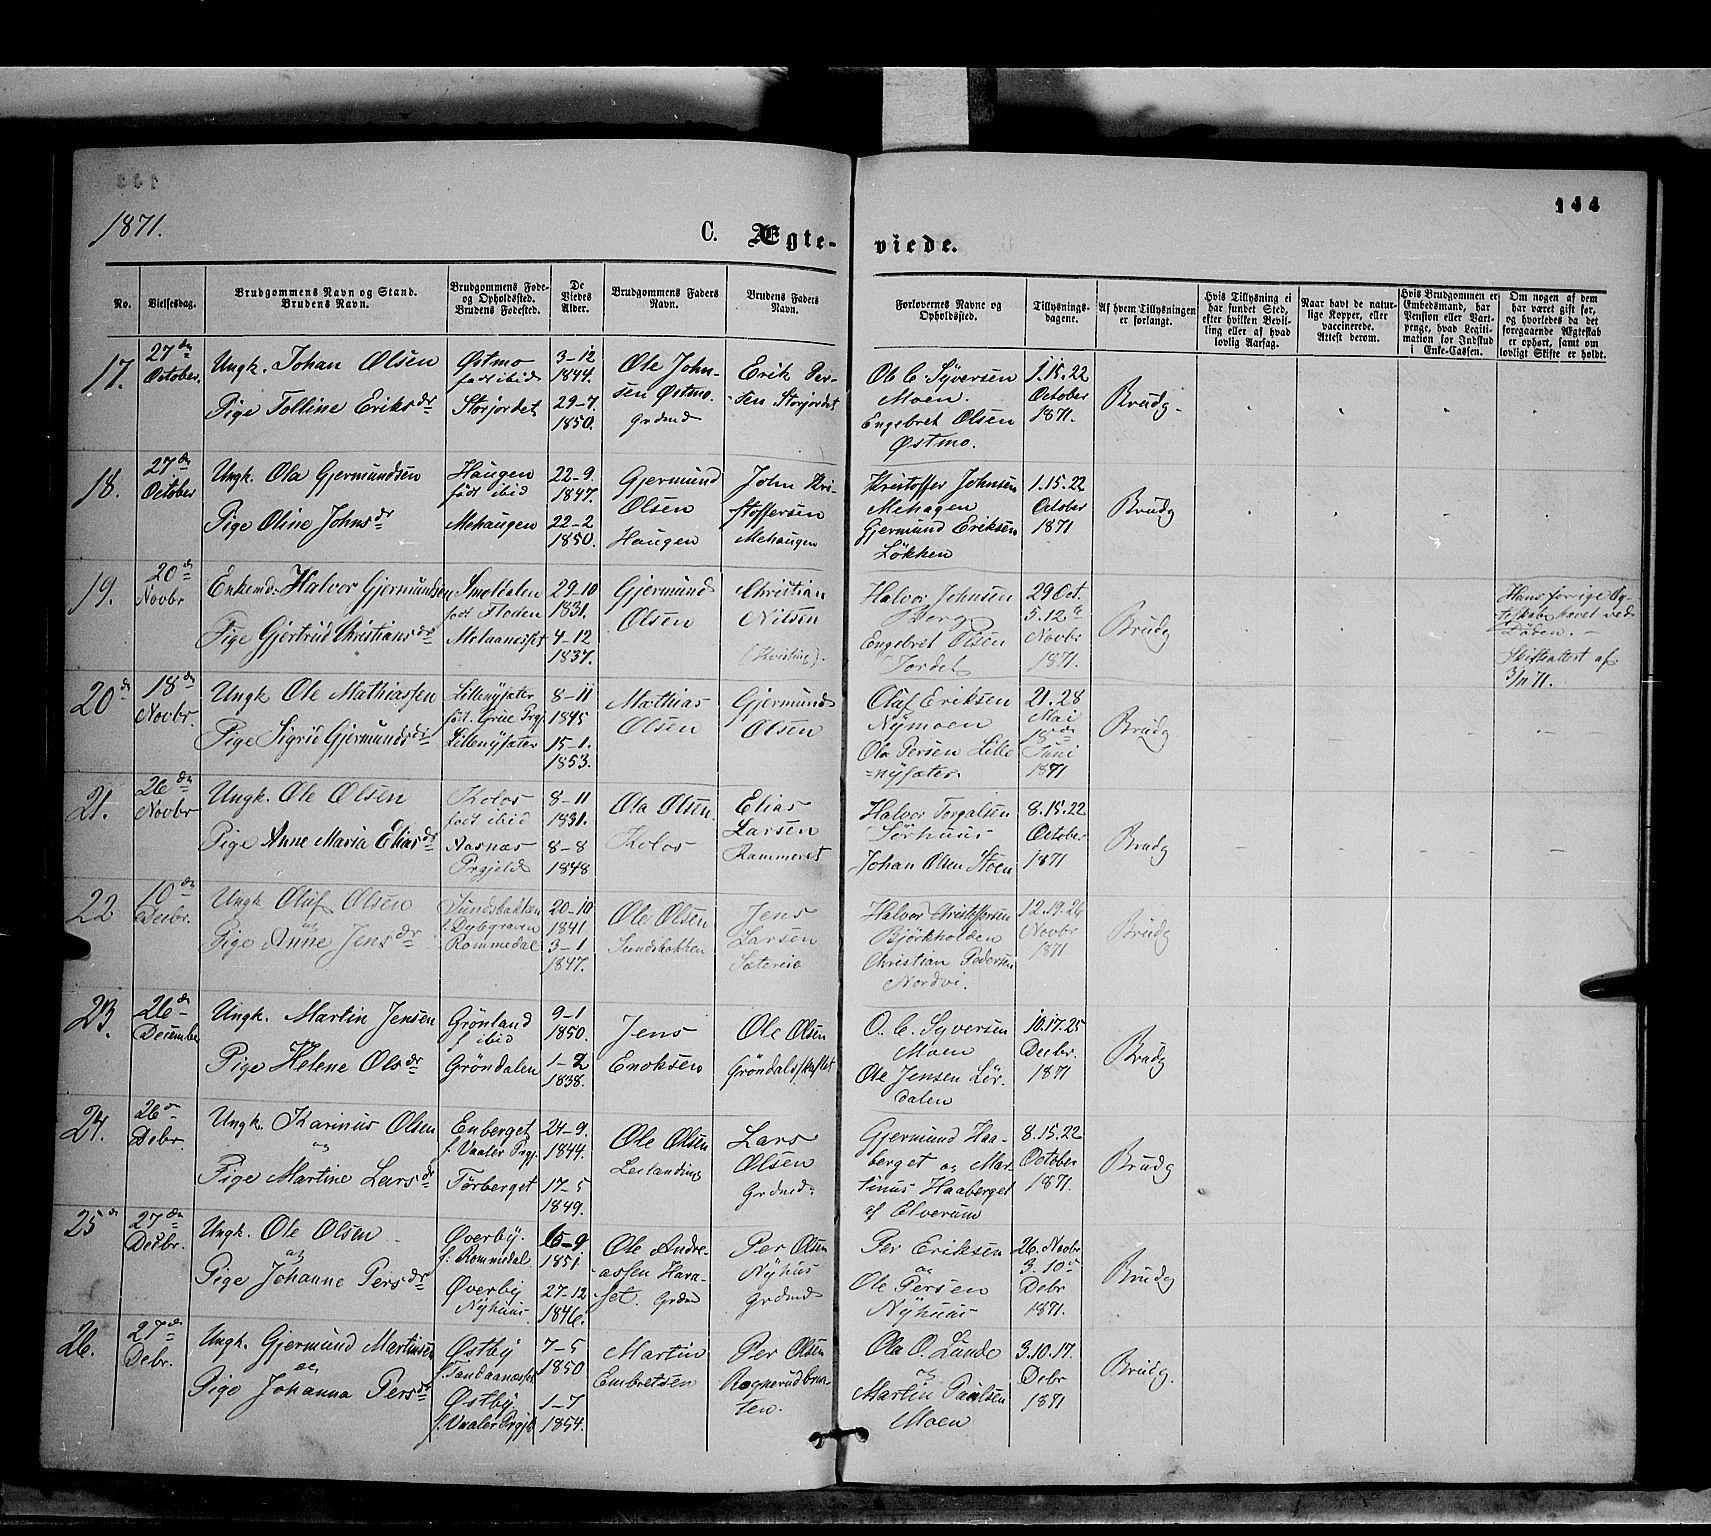 144
1871.
C. Ægte-viede.
No.
Vielsesdag.
Brudgommens Navn og Stand.
Brudens Navn.
Brudgommens Føde-
og Opholdssted.
Brudens Fødested.
De
Viedes
Alder.
Brudgommens Faders
Navn.
Brudens Faders
Navn.
Forlovernes Navne og
Opholdssted.
Tillysnings-
dagene.
Af hvem Tillysningen
er forlangt.
Hvis Tillysning ei
har fundet Sted,
efter hvilken Bevil-
ling eller af hvad
lovlig Aarsag.
Naar havt de natur-
lige Kopper, eller
vaccinerede.
Attest derom.
Hvis Brudgommen er
Embedsmand, har
Pension eller Vart-
penge, hvad Legiti-
mation for Indskud
i Enke-Cassen.
Om nogen af dem
har været gift før,
og hvorledes da det
foregaaende Ægteskab
er ophørt, samt om
lovligt Skifte er holdt.
17.
27de
October.
Ungk. Johan Olsen
Pige Tolline Eriksdr
Østmo
født ibid
Storjordet
3-12
1844.
29-7
1850.
Ole John-
sen Østmo.
Grdmd
Erik Per-
sen Storjordet
Ole C. Syversen
Moen.
Engebret Olsen
Østmo.
1.15.22
October
1871.
Brudg.
18.
27de
October
Ungk. Ola Gjermundsen
Pige Oline Johnsdr
Haugen
født ibid
Mehaugen
22-9
1847.
22-2
1850.
Gjermund
Olsen
Haugen
John Kri-
stoffersen
Mehaugen
Kristoffer Johnsen
Mehagen
Gjermund Eriksen
Løkken
1.15.22
October
1871
Brudg
19.
20de
Novbr
Enkemd. Halvor Gjermundsen
Pige Gjertrud Christiansdr
Smoldalen
født Floden
Melaanesset
29-10
1831.
4-12
1837.
Gjermund
Olsen
Christian
Nilsen
(Kvisting).
Halvor Johnsen
Berg
Engebret Olsen
Jordet
29 Oct.
5.12te
Novbr
1871.
Brudg
Hans forrige Æg-
teskab hævet ved
Døden. -
Skifteattest af
3/11 71.
20de
18de
Novbr.
Ungk Ole Mathiassen
Pige Sigrid Gjermundsdr
Lillenysæter
født. Grue Prgj.
Lillenysæter
8-11
1845
15-1.
1853.
Mathias
Olsen
Gjermund
Olsen
Oluf Eriksen
Nymoen
Ola Persen Lille
=nysæter.
21.28
Mai
Juni
1871
Brudg
21.
26de
Novbr
Ungk. Ole Olsen
Pige Anne Maria Eliasdr
Kolos
født ibid
Aasnæs
Prgjeld
8-11
1831.
8-8
1848
Ola Olsen.
Kolos
Elias
Larsen
Kammeret
Halvor Torgalsen
Sørhuus
Johan Olsen Moen
8.15.22
October
1871
Brudg
22
10de
Decbr.
Ungk Oluf Olsen
og
Pige Anne Jensdr
Sundsbakken
f. Dybgraven
Rommedal
20-10
1841
3-1
1847.
Ole Olsen
Sundsbakken
Jens
Larsen
Sætereie
Halvor Christoffersen
Bjørkholden
Christian Pedersen
Nordvi.
12.19.26
Novbr
1871
Brudg
23.
26de
December
Ungk. Martin Jensen
Pige Helene Olsdr
Grønland
f ibid
Grøndalen
9-1
1850.
1-2
1838.
Jens
Enoksen
Ole Olsen
Grøndalsskaftet
O. C. Syversen
Moen
Ole Jensen Lør-
dalen
10.17.25
Decbr.
1871
Brudg
24.
26de
Debr
Ungk. Karinus Olsen
og
Pige Martine Larsdr
Enberget
f. Vaaler Prgj.
Tørberget
24-9.
1844.
17-5
1849.
Ole Olsen
Leetanding
Lars
Olsen
Grdmd.
Gjermund Haa-
berget og Mar-
tinus Haaberget
af Elverum
8.15.22
October
1871.
Brudg
25de
27de
Decbr.
Ungk. Ole Olsen
og
Pige Johanne Persdr
Øverby.
f. Rommedal.
Øverby
Nyhuus.
15-9
1851
27-12
1846.
Ole Andre-
assen Hara-
set. Grdmd
Per Olsen
Nyhus
Grdmd
Per Eriksen
og
Ole Persen
Nyhuus
26. Novbr
3.10de
Debr
1871.
Brudg
26.
27de
Debr.
Ungk. Gjermund Martinsen
og
Pige Johanna Persdr
Østby
f. Tandaanesset
Østby
f. Vaaler Prgjd
7-5
1850
1-7
1854.
Martin
Embretsen
Per Olsen
Rognerudbraa-
ten.
Ola O. Lunde
og
Martin Paulsen
Moen
3.10.17.
Debr
1871
Brudg.